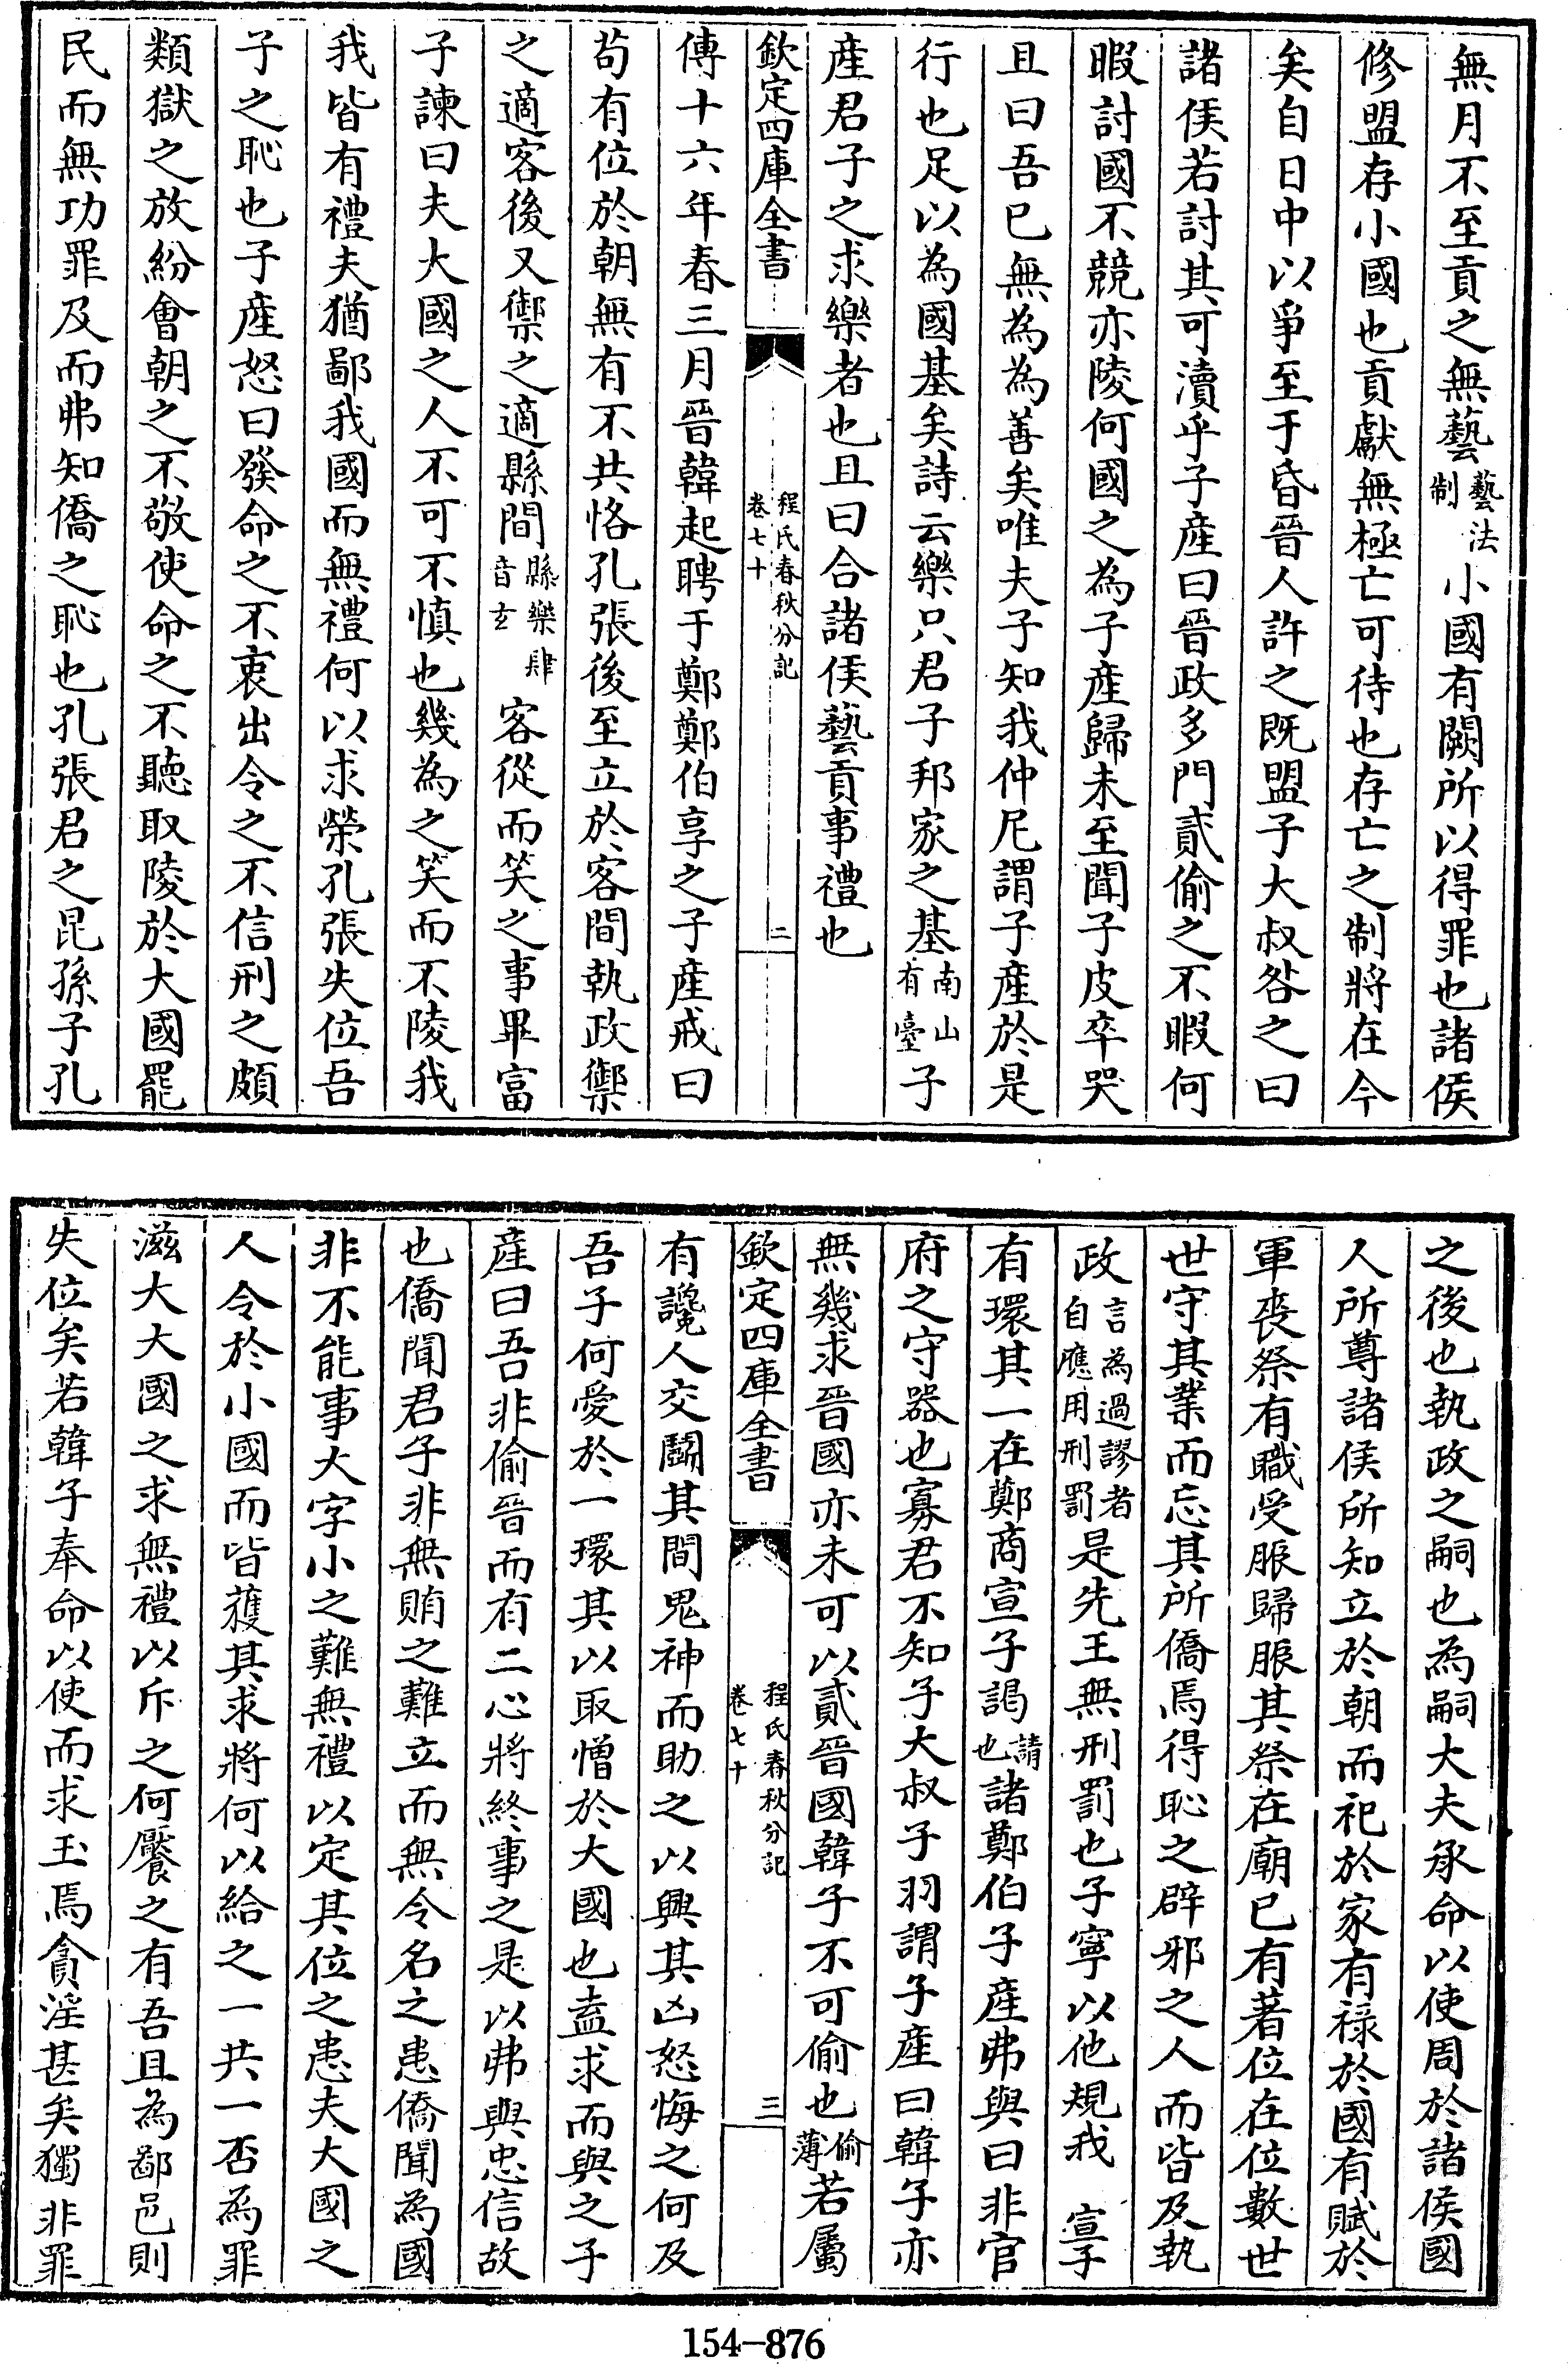 無月不至貢之無藝藝法制小國有闕所以得罪也諸侯
修盟存小國也貢獻無極亡可待也存亡之制將在今
矣自日中以爭至于昏晉人許之既盟子大叔咎之曰
諸侯若討其可瀆乎子產曰晉政多門貳偷之不暇何
暇討國不競亦陵何國之為子產歸未至聞子皮卒哭
且曰吾已無為為善矣唯夫子知我仲尼謂子產於是
行也足以為國基矣詩云樂只君子邦家之基南山有臺子
產君子之求樂者也且曰合諸侯藝貢事禮也
欽定四庫全書
程氏春秋分記
卷七十
二
傳十六年春三月晉韓起聘于鄭鄭伯享之子產戒曰
苟有位於朝無有不共恪孔張後至立於客間執政禦
之適客後又禦之適縣間縣樂肆音玄客從而笑之事畢富
子諫曰夫大國之人不可不慎也幾為之笑而不陵我
我皆有禮夫猶鄙我國而無禮何以求榮孔張失位吾
子之恥也子產怒曰發命之不衷出令之不信刑之頗
類獄之放紛會朝之不敬使命之不聽取陵於大國罷
民而無功罪及而弗知僑之恥也孔張君之昆孫子孔
之後也執政之嗣也為嗣大夫承命以使周於諸侯國
人所尊諸侯所知立於朝而祀於家有祿於國有賦於
軍喪祭有職受脤歸脤其祭在廟已有著位在位數世
世守其業而忘其所僑焉得恥之辟邪之人而皆及執
政言為過謬者自應用刑罰是先王無刑罰也子寧以他規我 宣子
有環其一在鄭商宣子謁請也諸鄭伯子產弗與曰非官
府之守器也寡君不知子大叔子羽謂子產曰韓子亦
無幾求晉國亦未可以貳晉國韓子不可偷也偷薄若屬
欽定四庫全書
程氏春秋分記
卷七十
三
有讒人交鬭其間鬼神而助之以興其凶怒悔之何及
吾子何愛於一環其以取憎於大國也盍求而與之子
產曰吾非偷晉而有二心將終事之是以弗與忠信故
也僑聞君子非無賄之難立而無令名之患僑聞為國
非不能事大字小之難無禮以定其位之患夫大國之
人令於小國而皆獲其求將何以給之一共一否為罪
滋大大國之求無禮以斥之何饜之有吾且為鄙邑則
失位矣若韓子奉命以使而求玉焉貪淫甚矣獨非罪
154-876